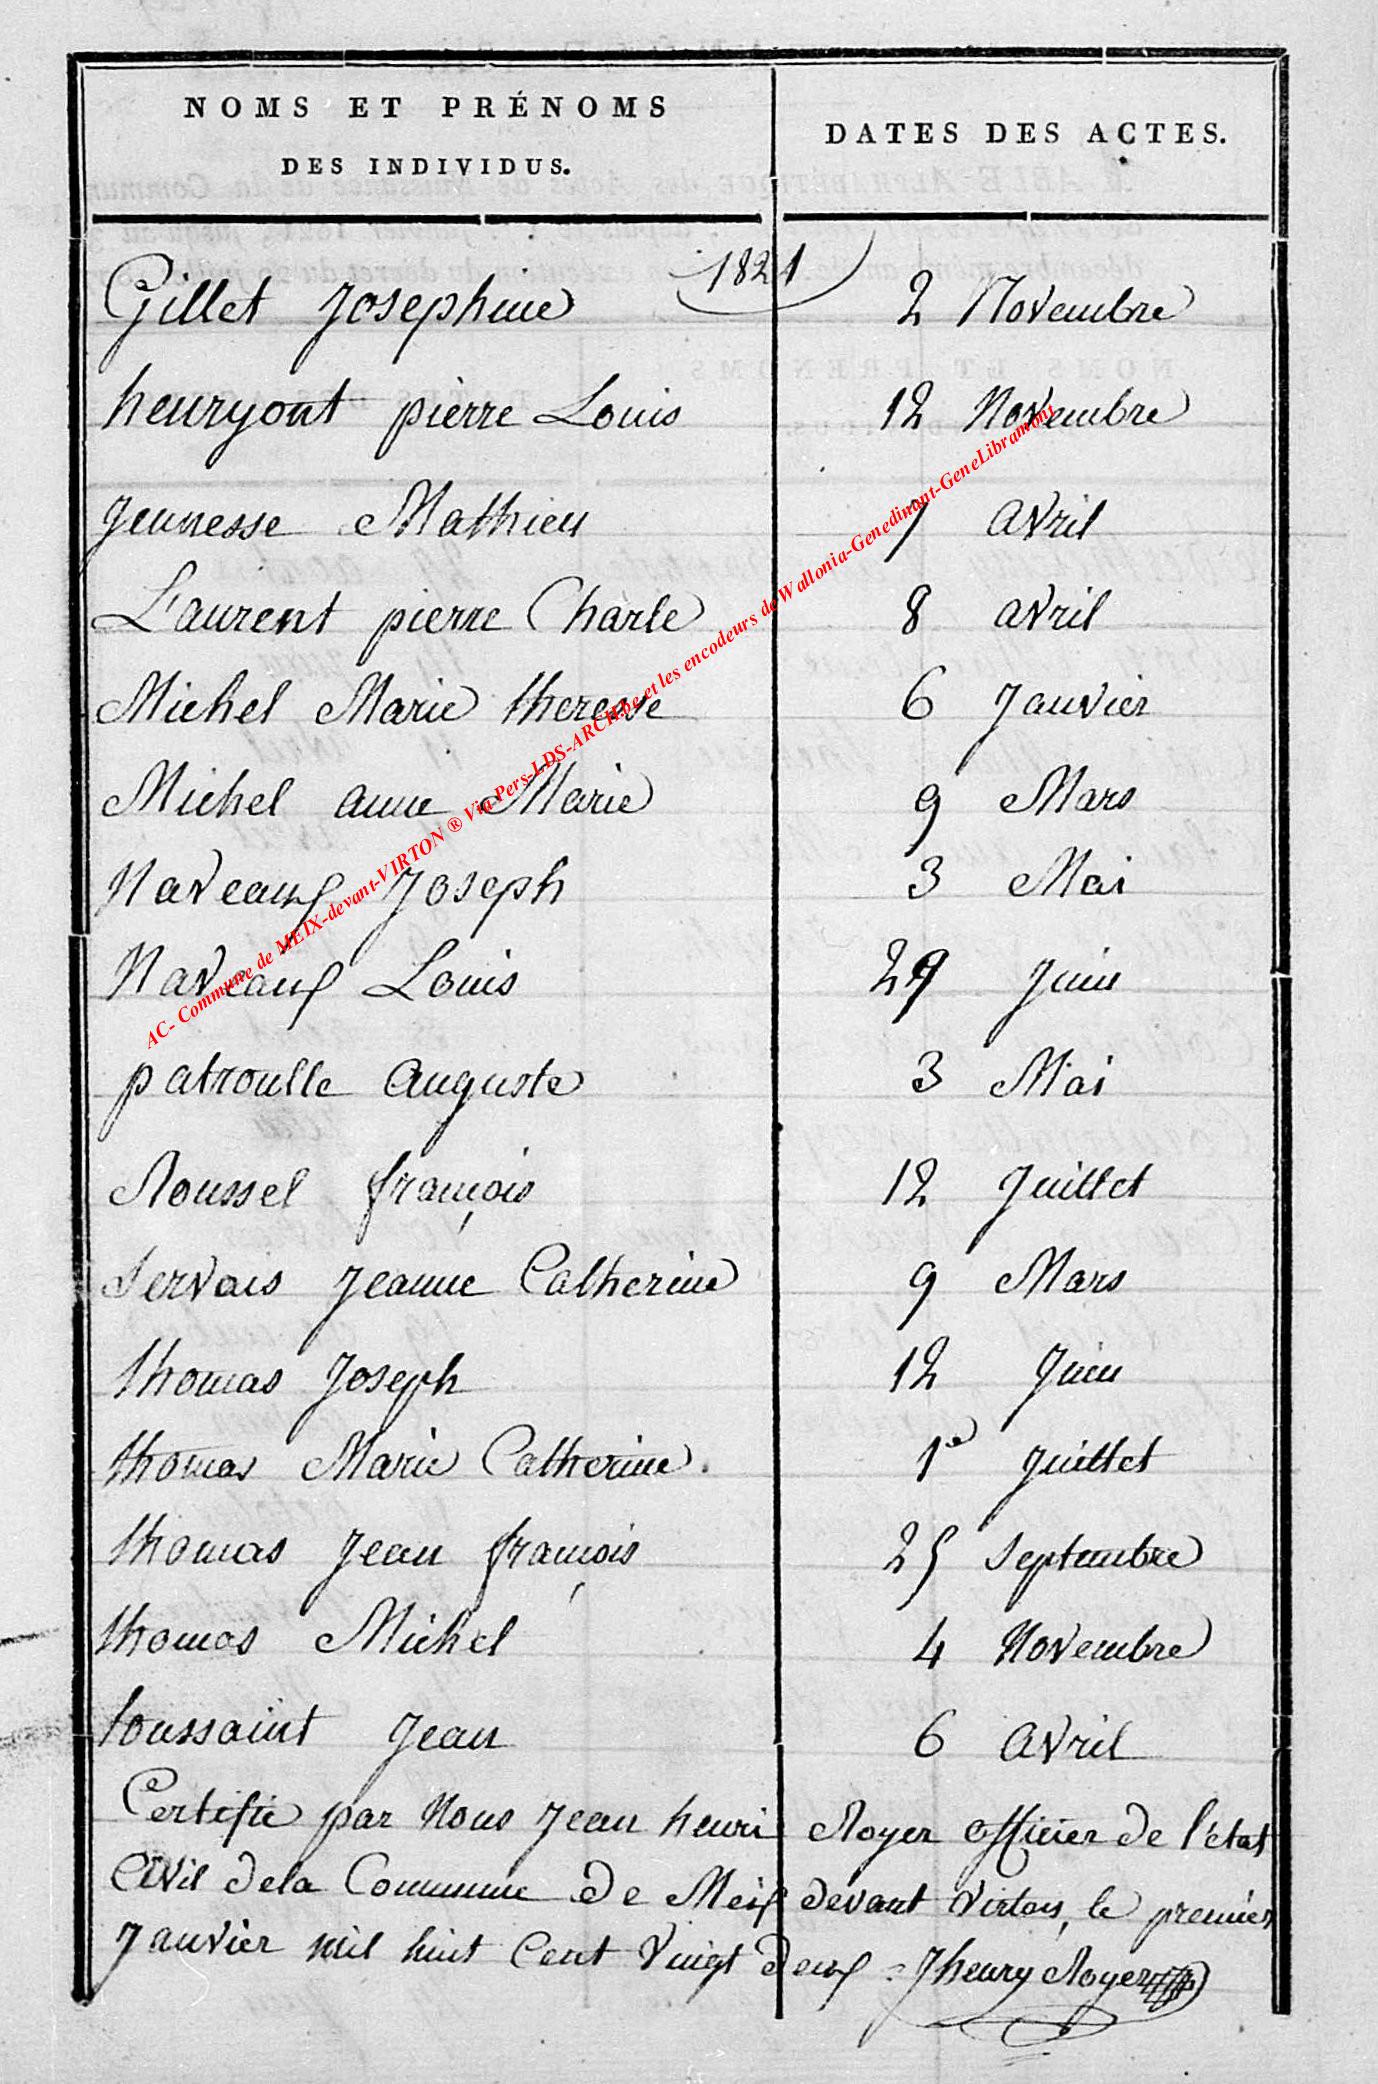 NOMS ET PRÉNOMS
DES INDIVIDUS.
DATES DES ACTES.
1821
Gillet Josephine 2 Novembre
henryont pierre Louis 12 Novembre
Jeunesse Mathieu 7 avril
Laurent pierre Charle 8 avril
Michel Marie theresse 6 Janvier
Michel anne Marie 9 Mars
Naveaux Joseph 3 Mai
Naveaux Louis 29 Juin
patroulle auguste 3 Mai
Roussel françois 12 Juillet
Servais Jeanne Catherine 9 Mars
thomas Joseph 12 Juin
thomas Marie Catherine. 1e Juillet
thomas Jean françois 25 Septembre
thomas Michel 4 Novembre
toussaint Jean 6 avril
Certifié par Nous Jean henri Royer officier de l'état
Civil dela Commune de Meix devant Virton, le premier
Janvier mil huit Cent Vingt deux = Jhenry Royer
AC- Commune de MEIX-devant-VIRTON ® Via Pers-LDS-ARCH.be et les encodeurs de Wallonia-Genedinant-GeneLibramont